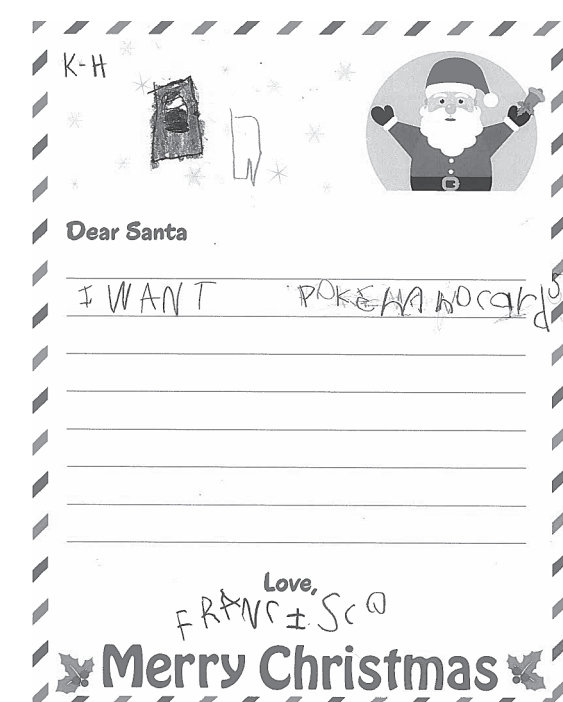 K-H
Dear Santa
I WANT POKEMANO cards
Love,
FRANCISCO
Merry Christmas